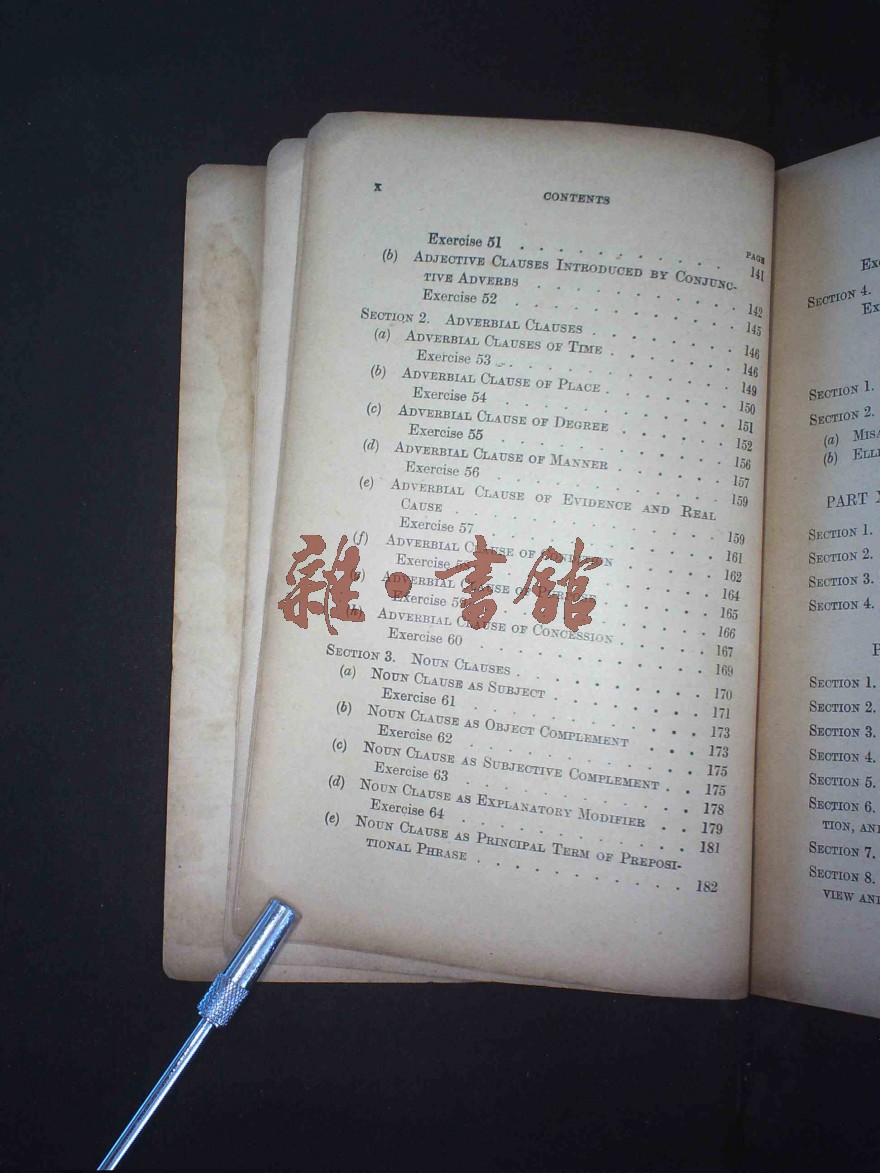 x
CONTENTS
PAGE
Exercise 51 . . . . . . . . . . . 141
(b) ADJECTIVE CLAUSES INTRODUCED BY CONJUNC-
TIVE ADVERBS . . . . . . . . . . 142
Exercise 52 . . . . . . . . . . . 145
SECTION 2. ADVERBIAL CLAUSES . . . . . . . 146
(a) ADVERBIAL CLAUSES OF TIME . . . . . . . 146
Exercise 53 . . . . . . . . . . . 149
(b) ADVERBIAL CLAUSE OF PLACE . . . . . . . 150
Exercise 54 . . . . . . . . . . . 151
(c) ADVERBIAL CLAUSE OF DEGREE . . . . . . 152
Exercise 55 . . . . . . . . . . . 156
(d) ADVERBIAL CLAUSE OF MANNER . . . . . . 157
Exercise 56 . . . . . . . . . . . 159
(e) ADVERBIAL CLAUSE OF EVIDENCE AND REAL
CAUSE . . . . . . . . . . . . 159
Exercise 57 . . . . . . . . . . . 161
(f) ADVERBIAL CLAUSE OF CONDITION . . . . . 162
Exercise 58 . . . . . . . . . . . 164
(g) ADVERBIAL CLAUSE OF PURPOSE . . . . . . 165
Exercise 59 . . . . . . . . . . . 166
(h) ADVERBIAL CLAUSE OF CONCESSION . . . . . 167
Exercise 60 . . . . . . . . . . . 169
SECTION 3. NOUN CLAUSES . . . . . . . . . 170
(a) NOUN CLAUSE AS SUBJECT . . . . . . . 171
Exercise 61 . . . . . . . . . . . 173
(b) NOUN CLAUSE AS OBJECT COMPLEMENT . . . 173
Exercise 62 . . . . . . . . . . . 175
(c) NOUN CLAUSE AS SUBJECTIVE COMPLEMENT . . 175
Exercise 63 . . . . . . . . . . . 178
(d) NOUN CLAUSE AS EXPLANATORY MODIFIER . . 179
Exercise 64 . . . . . . . . . . . 181
(e) NOUN CLAUSE AS PRINCIPAL TERM OF PREPOSI-
TIONAL PHRASE . . . . . . . . . . 182
雜·書館
SECTION 4.
SECTION 1.
SECTION 2.
(a)
(b)
PART
SECTION 1.
SECTION 2.
SECTION 3.
SECTION 4.
SECTION 1.
SECTION 2.
SECTION 3.
SECTION 4.
SECTION 5.
SECTION 6.
TION,
SECTION 7.
SECTION 8.
VIEW